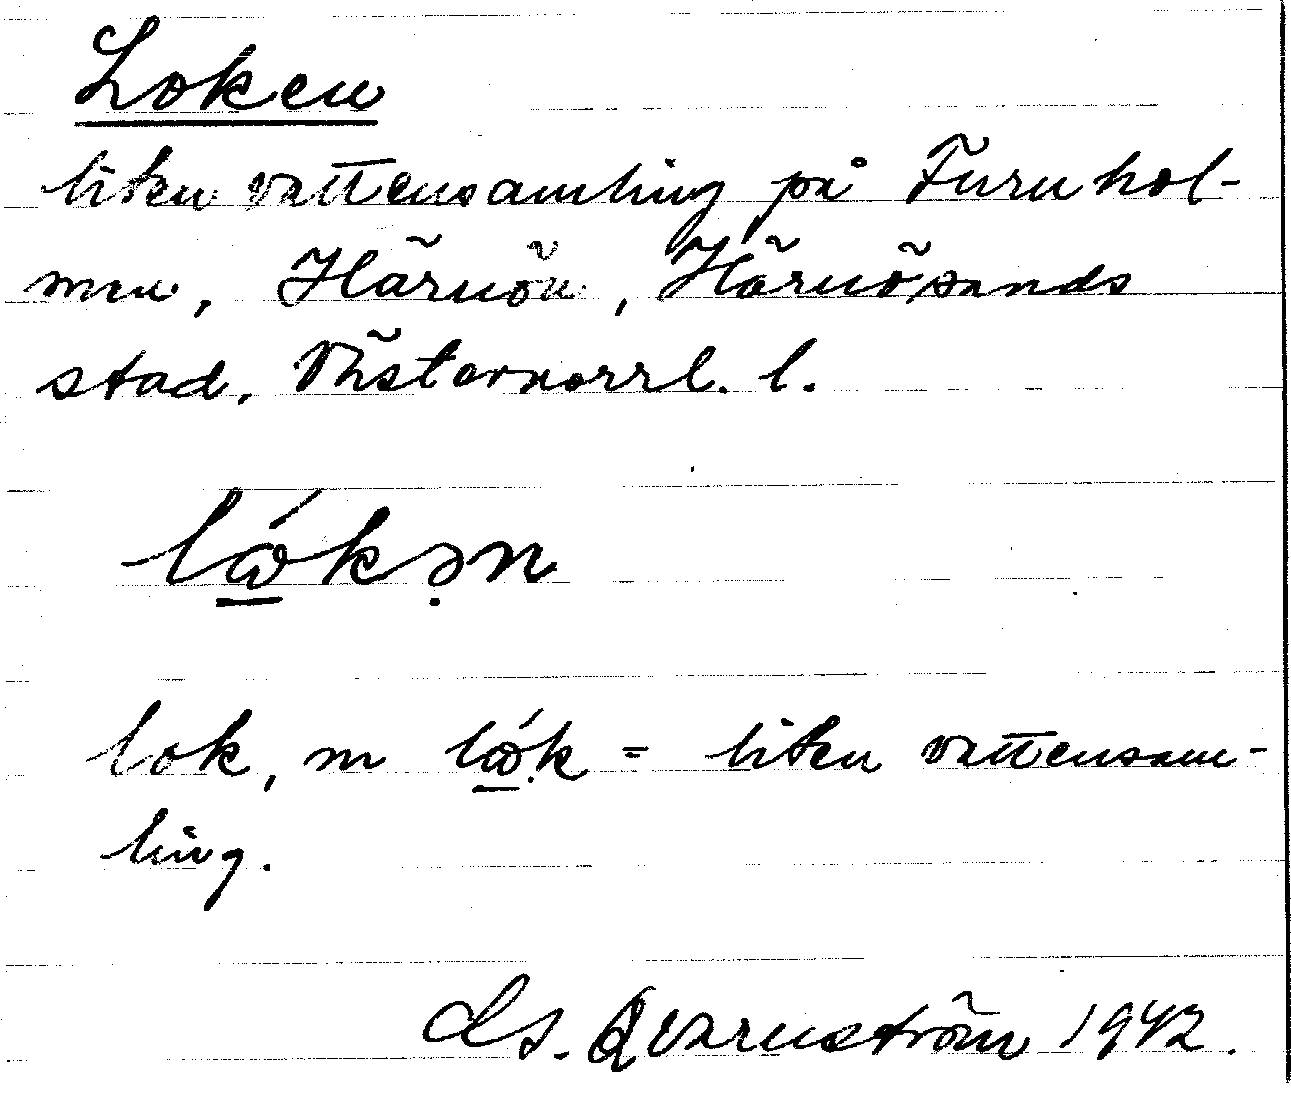 Loken
liten vattensamling på Furuhol-
men, Härnön, Härnösands
stad, Västernorrl. l.
lώ̲kə̣n
lok, m lώ̲k = liten vattensam-
ling.
Ls. Qvarnström 1942.